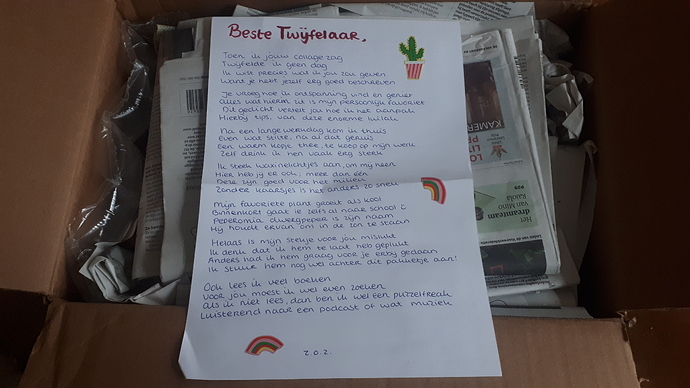 Beste Twijfelaar,
Toen ik jouw collage zag
Twijfelde ik geen dag
Ik wist precies wat ik jou zou geven
Want je hebt jezelf erg goed beschreven
Je vroeg hoe ik ontspanning vind en geniet
Alles wat hierin zit is mijn persoonlijk favoriet
Dit gedicht vertelt jou hoe ik het aanpak
Hierbij tips, van deze enorme luilak
Na een lange werkdag kom ik thuis
Even wat stilte, na al dat geruis
Een warm kopje thee, te koop op mijn werk
Zelf drink ik hen vaak erg sterk
Ik steek waxinelichtjes aan, om mij heen
Hier heb jij er ook, meer dan één
Deze zijn goed voor het milieu
Zonder kaarsjes is het anders zo
Mijn favoriete plant groeit als kool
Binnenkort gaat ie zelfs al naar school
Peperomia dwergpeper is zijn naam
Hij houdt ervan om in de zon te staan
Helaas is mijn stekje voor jou mislukt
Ik denk dat ik hem te laat heb geplukt
Anders had ik hem graag voor je erbij gedaan
Ik stuur hem nog wel achter dit pakketje aan!
Ook lees ik veel boeken
Voor jou moest ik wel even zoeken
Als ik niet lees, dan ben ik wel een puzzelfreak
Luisterend naar een podcast of wat muziek
z.o.z.
KAMER
Het
dreamteam
van Mino
Kaola